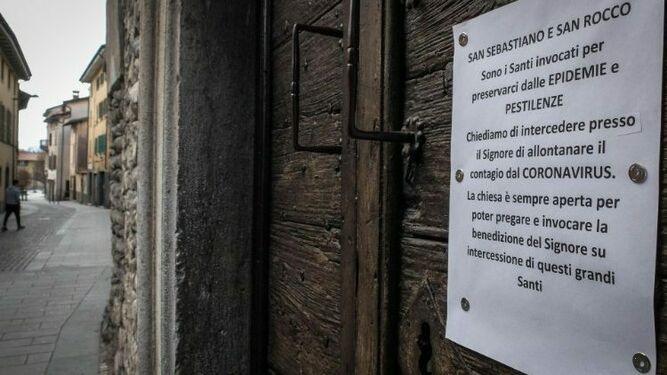 SAN SEBASTIANO E SAN ROCCO
Sono i Santi invocati per
preservarci dalle EPIDEMIE e
PESTILENZE
Chiediamo di intercedere presso
il Signore di allontanare il
contagio dal CORONAVIRUS.
La chiesa è sempre aperta per
poter pregare e invocare la
benedizione del Signore su
intercessione di questi grandi
Santi